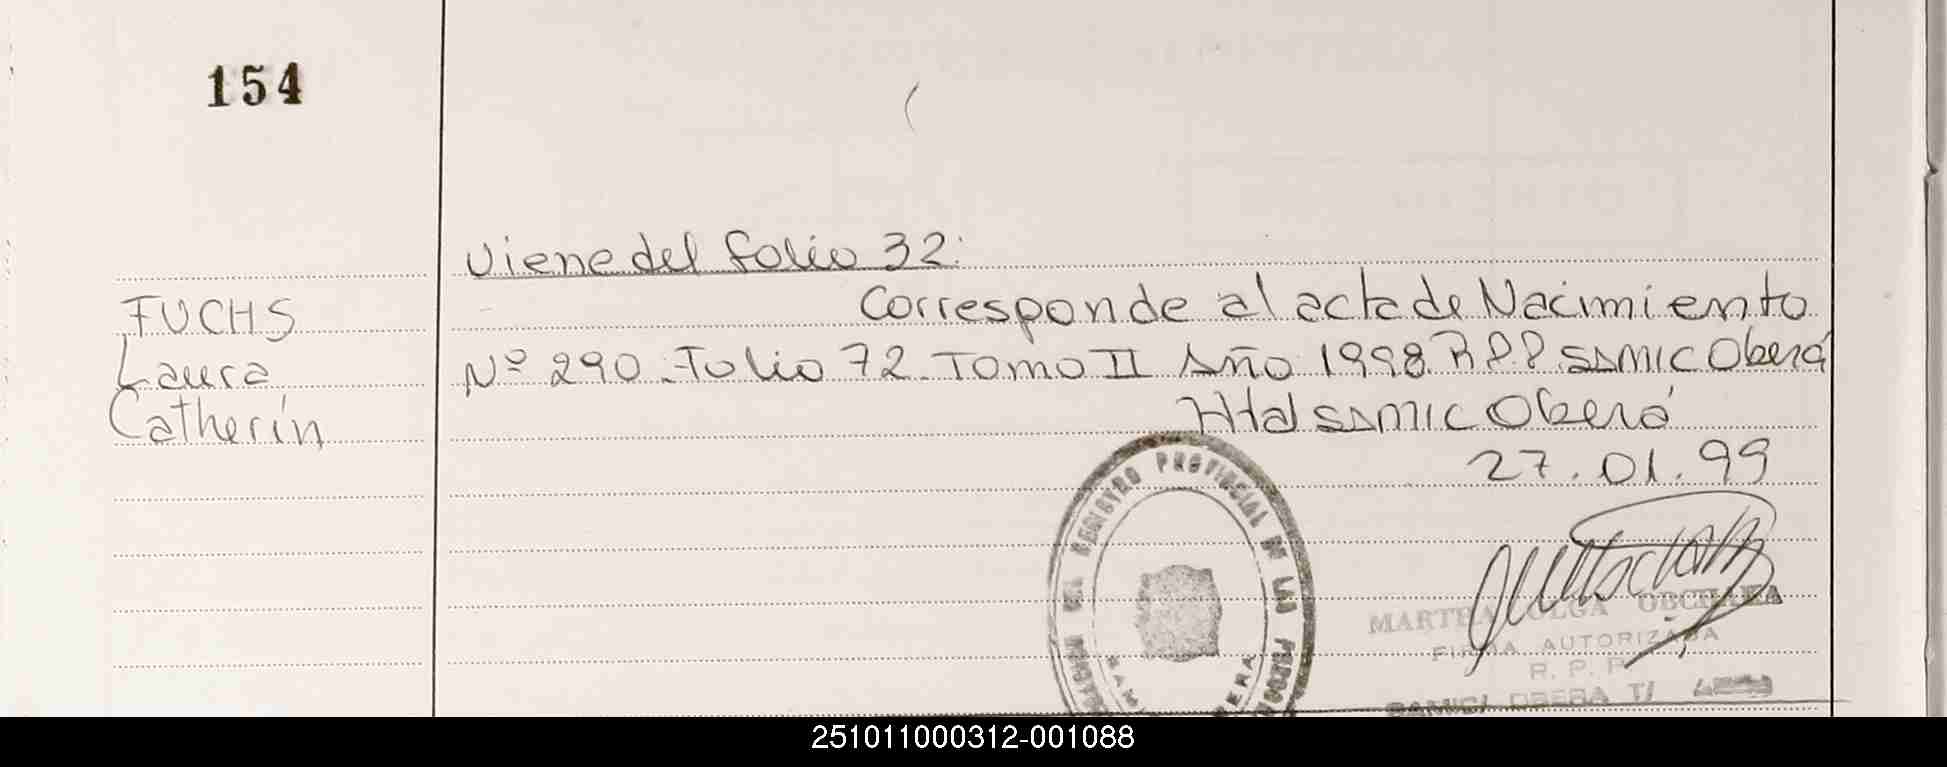 154
viene del folio 32:
FUCHS
Corresponde al acta de Nacimiento
Laura
Nº 290. Folio 72. Tomo II Año 1998. R.P.P. SAMIC Oberá
Catherín
Htal SAMIC Oberá
27.01.99
DEL REGISTRO PROVINCIAL DE LAS
MARTHA OLGA
FIRMA AUTORIZADA
R. P. P.
SAMIC/ OBERA T/
251011000312-001088